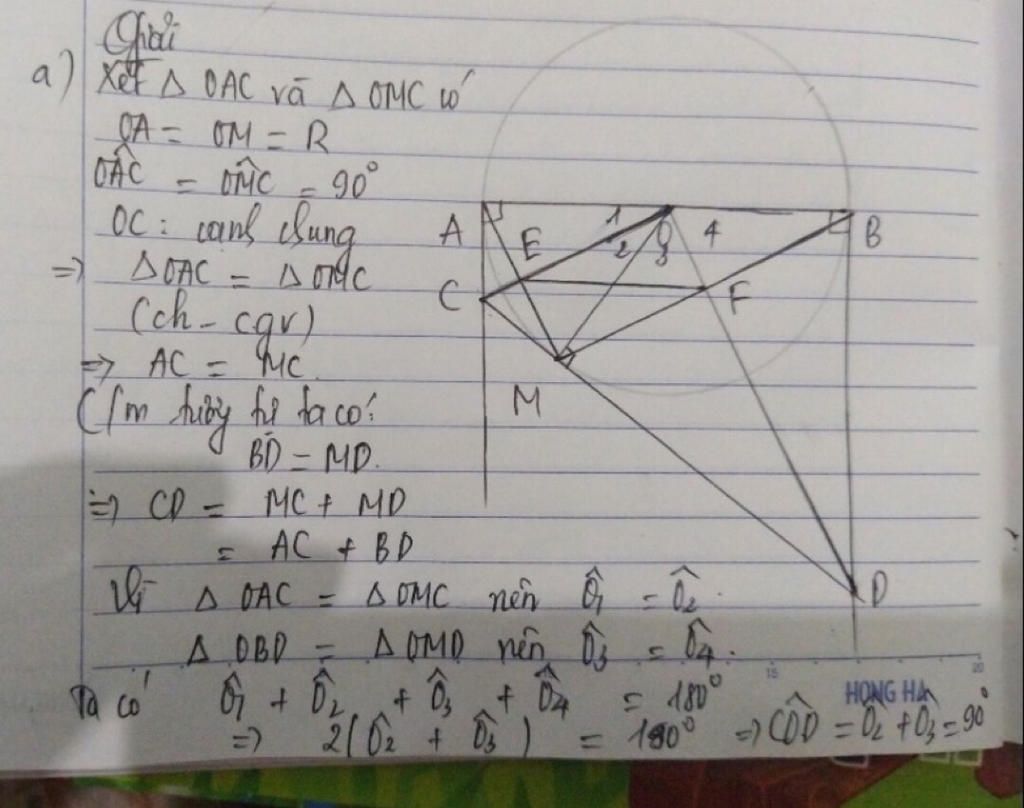 Giải
a) Xét Δ OAC và Δ OMC có
OA = OM = R
OÂC = OM̂C = 90°
OC : cạnh chung
=> ΔOAC = ΔOMC
(ch - cgv)
=> AC = MC
C/m tương tự ta có:
BD = MD.
=> CD = MC + MD
= AC + BD
Vì Δ OAC = Δ OMC nên Ô1 = Ô2.
Δ OBD = Δ OMD nên Ô3 = Ô4.
Ta có Ô1 + Ô2 + Ô3 + Ô4 = 180°
=> 2(Ô2 + Ô3) = 180° => CÔD = Ô2 + Ô3 = 90°
A
E
1
2
O
3
4
B
C
F
M
D
15
20
HONG HA